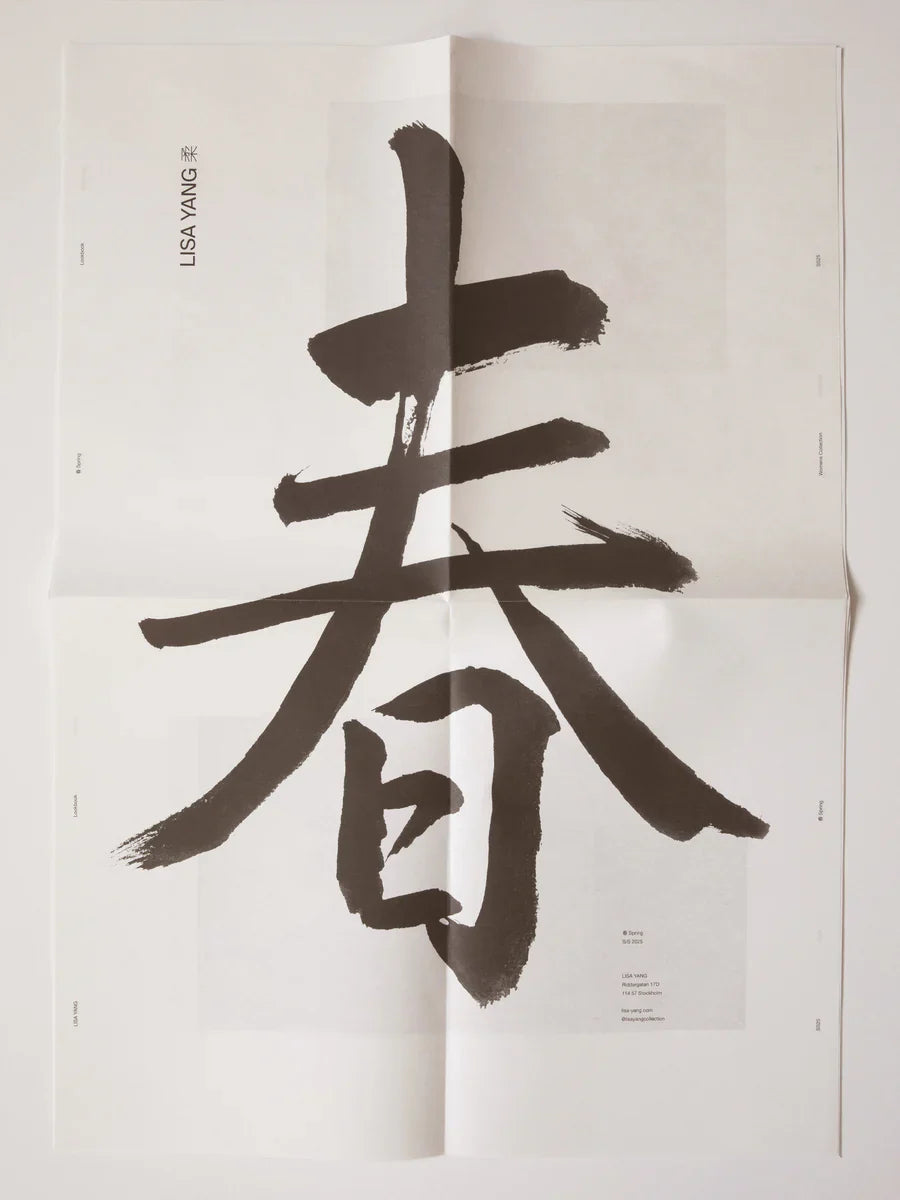 LISA YANG 柔
Lookbook
春 Spring
Lookbook
LISA YANG
春
SS25
Womens Collection
春 Spring
SS25
春 Spring
S/S 2025
LISA YANG
Riddargatan 17D
114 57 Stockholm
lisa-yang.com
@lisayangcollection